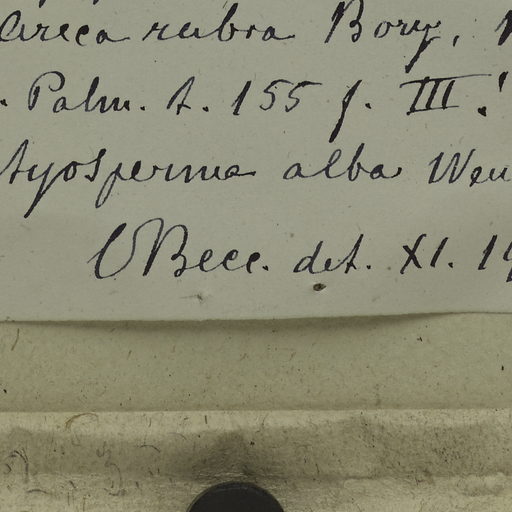 Areca rubra Bory,
. Palm. t. 155 f. III.!
tyosperma alba Wen
OBecc. det. XI. 19